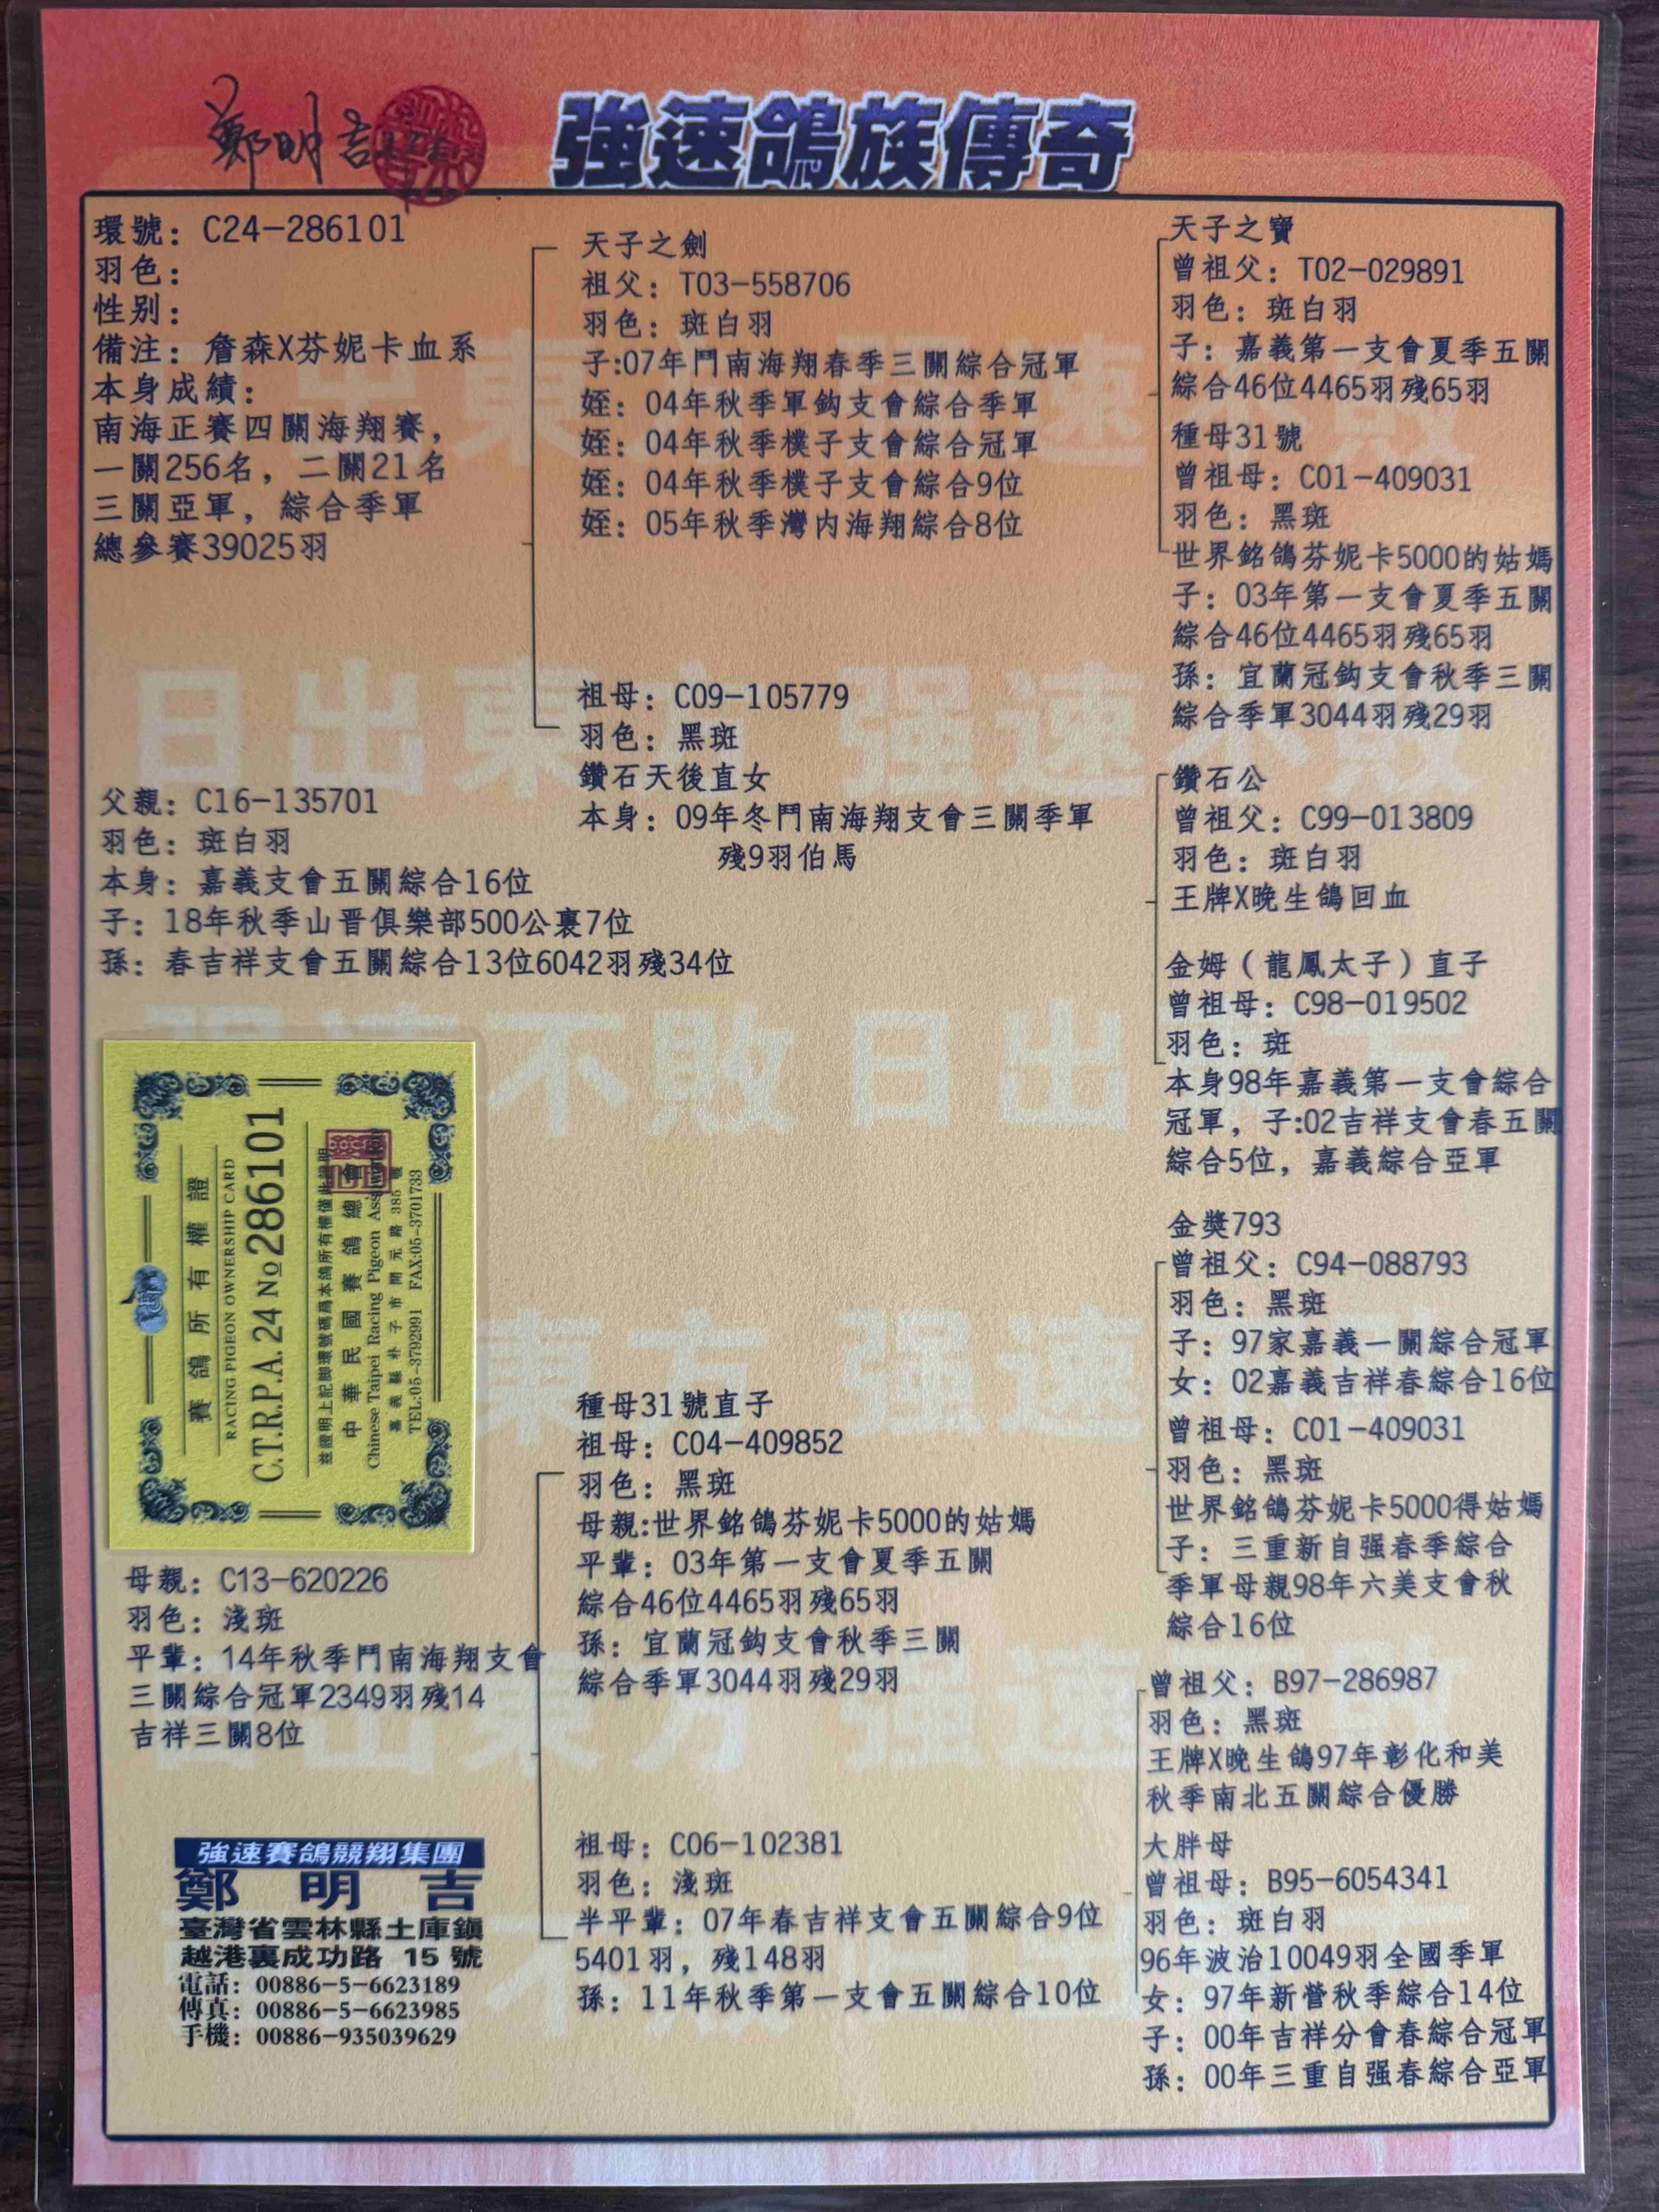 鄭明吉
強速鴿族傳奇
環號：C24-286101
羽色：
性别：
備注：詹森X芬妮卡血系
本身成績：
南海正賽四關海翔賽，
一關256名，二關21名
三關亞軍，綜合季軍
總參賽39025羽
天子之劍
祖父：T03-558706
羽色：斑白羽
子:07年鬥南海翔春季三關綜合冠軍
姪：04年秋季軍鈎支會綜合季軍
姪：04年秋季樸子支會綜合冠軍
姪：04年秋季樸子支會綜合9位
姪：05年秋季灣内海翔綜合8位
祖母：C09-105779
羽色：黑斑
鑽石天後直女
本身：09年冬鬥南海翔支會三關季軍
殘9羽伯馬
天子之寶
曾祖父：T02-029891
羽色：斑白羽
子：嘉義第一支會夏季五關
綜合46位4465羽殘65羽
種母31號
曾祖母：C01-409031
羽色：黑斑
世界銘鴿芬妮卡5000的姑媽
子：03年第一支會夏季五關
綜合46位4465羽殘65羽
孫：宜蘭冠鈎支會秋季三關
綜合季軍3044羽殘29羽
鑽石公
曾祖父：C99-013809
羽色：斑白羽
王牌X晚生鴿回血
金姆（龍鳳太子）直子
曾祖母：C98-019502
羽色：斑
本身98年嘉義第一支會綜合
冠軍，子:02吉祥支會春五關
綜合5位，嘉義綜合亞軍
父親：C16-135701
羽色：斑白羽
本身：嘉義支會五關綜合16位
子：18年秋季山晋俱樂部500公裏7位
孫：春吉祥支會五關綜合13位6042羽殘34位
賽鴿所有權證
RACING PIGEON OWNERSHIP CARD
C.T.R.P.A. 24 No 286101
茲證明上記脚環號碼爲本鴿所有權僅此證明
中華民國賽鴿總會
Chinese Taipei Racing Pigeon Association
嘉義縣朴子市開元路385號
TEL:05-3792991 FAX:05-3701733
母親：C13-620226
羽色：淺斑
平輩：14年秋季鬥南海翔支會
三關綜合冠軍2349羽殘14
吉祥三關8位
種母31號直子
祖母：C04-409852
羽色：黑斑
母親:世界銘鴿芬妮卡5000的姑媽
平輩：03年第一支會夏季五關
綜合46位4465羽殘65羽
孫：宜蘭冠鈎支會秋季三關
綜合季軍3044羽殘29羽
祖母：C06-102381
羽色：淺斑
半平輩：07年春吉祥支會五關綜合9位
5401羽，殘148羽
孫：11年秋季第一支會五關綜合10位
金獎793
曾祖父：C94-088793
羽色：黑斑
子：97家嘉義一關綜合冠軍
女：02嘉義吉祥春綜合16位
曾祖母：C01-409031
羽色：黑斑
世界銘鴿芬妮卡5000得姑媽
子：三重新自强春季綜合
季軍母親98年六美支會秋
綜合16位
曾祖父：B97-286987
羽色：黑斑
王牌X晚生鴿97年彰化和美
秋季南北五關綜合優勝
大胖母
曾祖母：B95-6054341
羽色：斑白羽
96年波治10049羽全國季軍
女：97年新營秋季綜合14位
子：00年吉祥分會春綜合冠軍
孫：00年三重自强春綜合亞軍
強速賽鴿競翔集團
鄭明吉
臺灣省雲林縣土庫鎮
越港裏成功路 15 號
電話：00886-5-6623189
傳真：00886-5-6623985
手機：00886-935039629